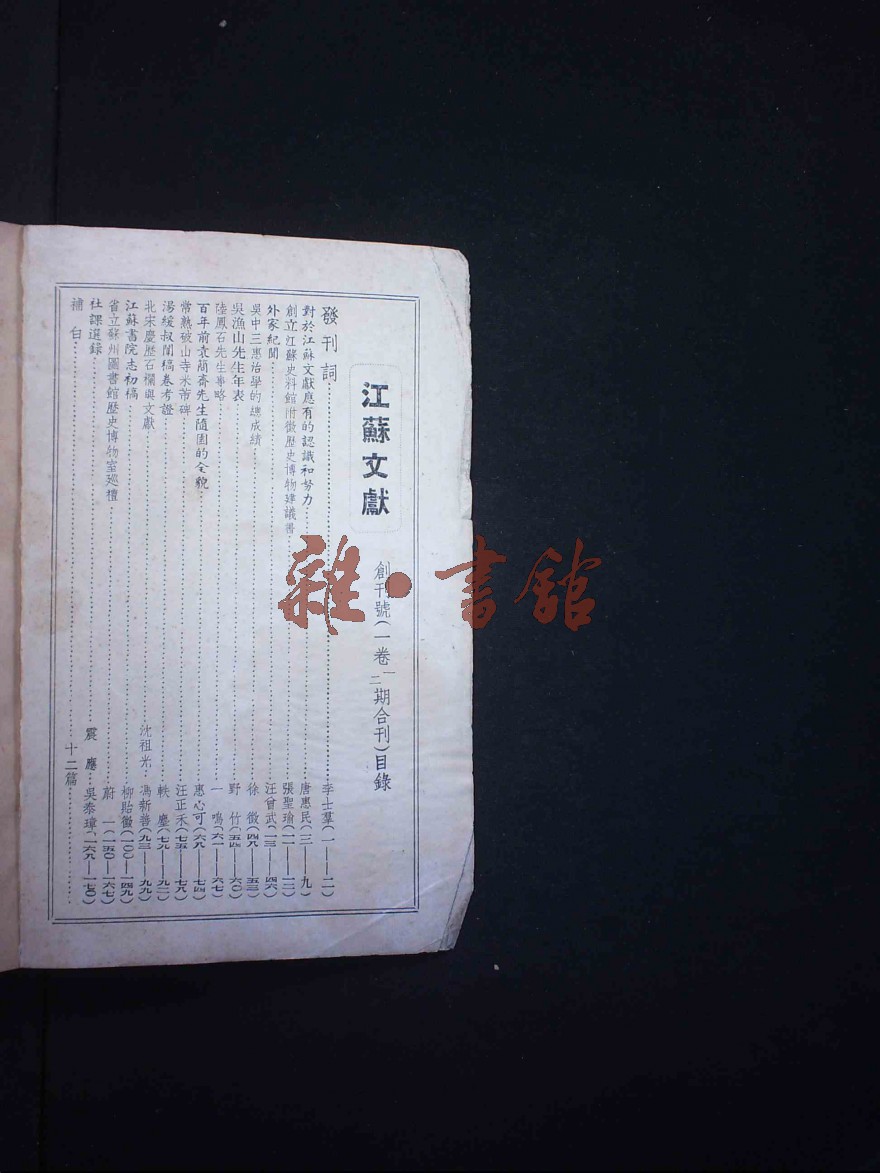 江蘇文獻
創刊號（一卷一二期合刊）目錄
發刊詞……李士羣（一——二）
對於江蘇文獻應有的認識和努力……唐惠民（三——九）
創立江蘇史料館附徵歷史博物建議書……張聖瑜（一一——一三）
外家紀聞……汪曾武（一三——四六）
吳中三惠治學的總成績……徐徵（四九——五三）
吳漁山先生年表……野竹（五四——六〇）
陸鳳石先生事略……一鳴（六一——六七）
百年前袁簡齋先生隨園的全貌……惠心可（六九——七四）
常熟破山寺米芾碑……汪正禾（七五——七八）
湯緩叔闈稿卷考證……軼塵（七九——九二）
北宋慶歷石欄與文獻……沈祖光 馮新善（九三——九九）
江蘇書院志初稿……柳貽徵（一〇〇——一四九）
省立蘇州圖書館歷史博物室巡禮……蔚一（一五〇——一六七）
社課選錄……震應 吳泰瑋（一六九——一七〇）
補白……十二篇……
雜·書館